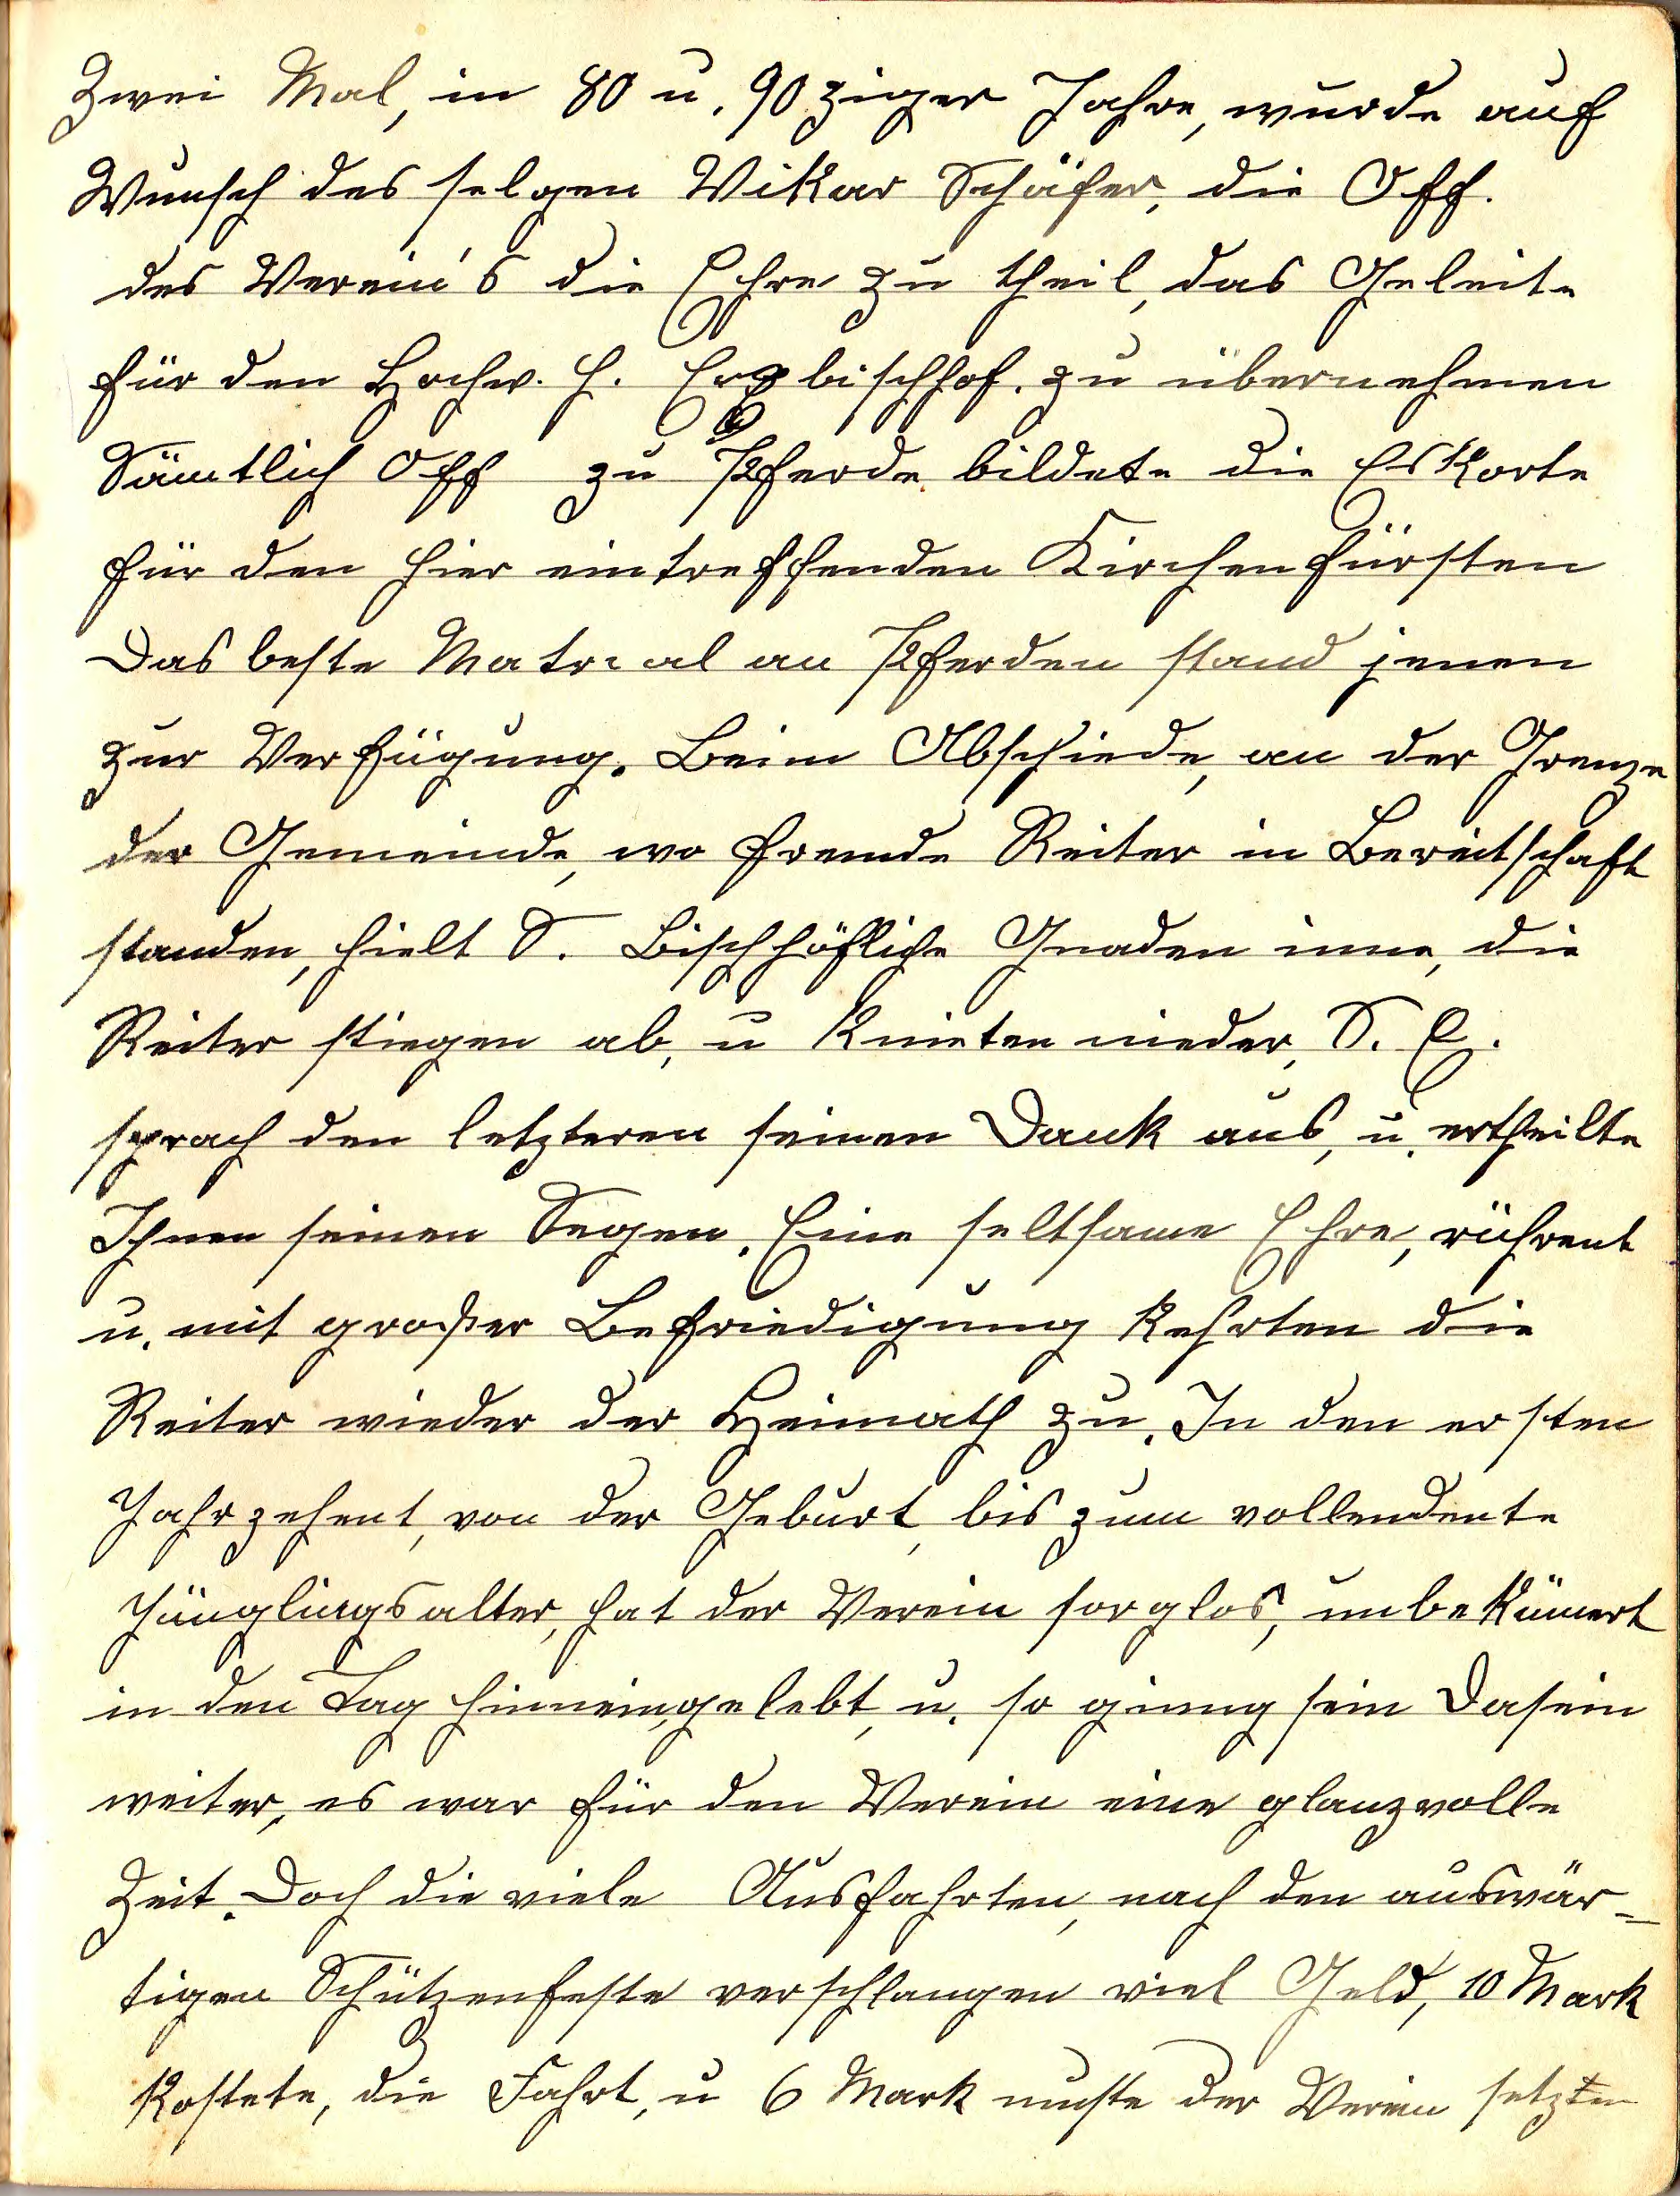 Zwei Mal, in 80 u. 90ziger Jahre, wurde auf
Wunsch des selgen Vikar Schäfer, die Off.
des Verein's die Ehre zu theil, das Geleite
für den Hochw. H. Erzbischhof. zu übernehmen
Sämtlich Off zu Pferde bildete die Eskorte
für den hier eintreffenden Kirchenfürsten
Das beste Matrial an Pferden stand jenen
zur Verfügung. Beim Abschiede, an der Grenze
der Gemeinde, wo fremde Reiter in Bereitschaft
standen, hielt S. Bischhöfliche Gnaden inne, die
Reiter stiegen ab, u knieten nieder, S. E.
sprach den letzteren seinen Dank aus, u. ertheilte
Ihnen seinen Segen. Eine seltsame Ehre, rührent
u. mit großer Befriedigung kehrten die
Reiter wieder der Heimath zu. In den ersten
Jahrzehent, von der Geburt, bis zum vollendente
Jünglingsalter, hat der Verein sorglos, unbekümert
in den Tag hinneingelebt, u. so ginng sein Dasein
weiter, es war für den Verein eine glanzvolle
Zeit. Doch die viele Ausfahrten, nach den auswär=
tigen Schützenfeste verschlangen viel Geld, 10 Mark
kostete, die Fahrt, u 6 Mark muste der Verein setzten